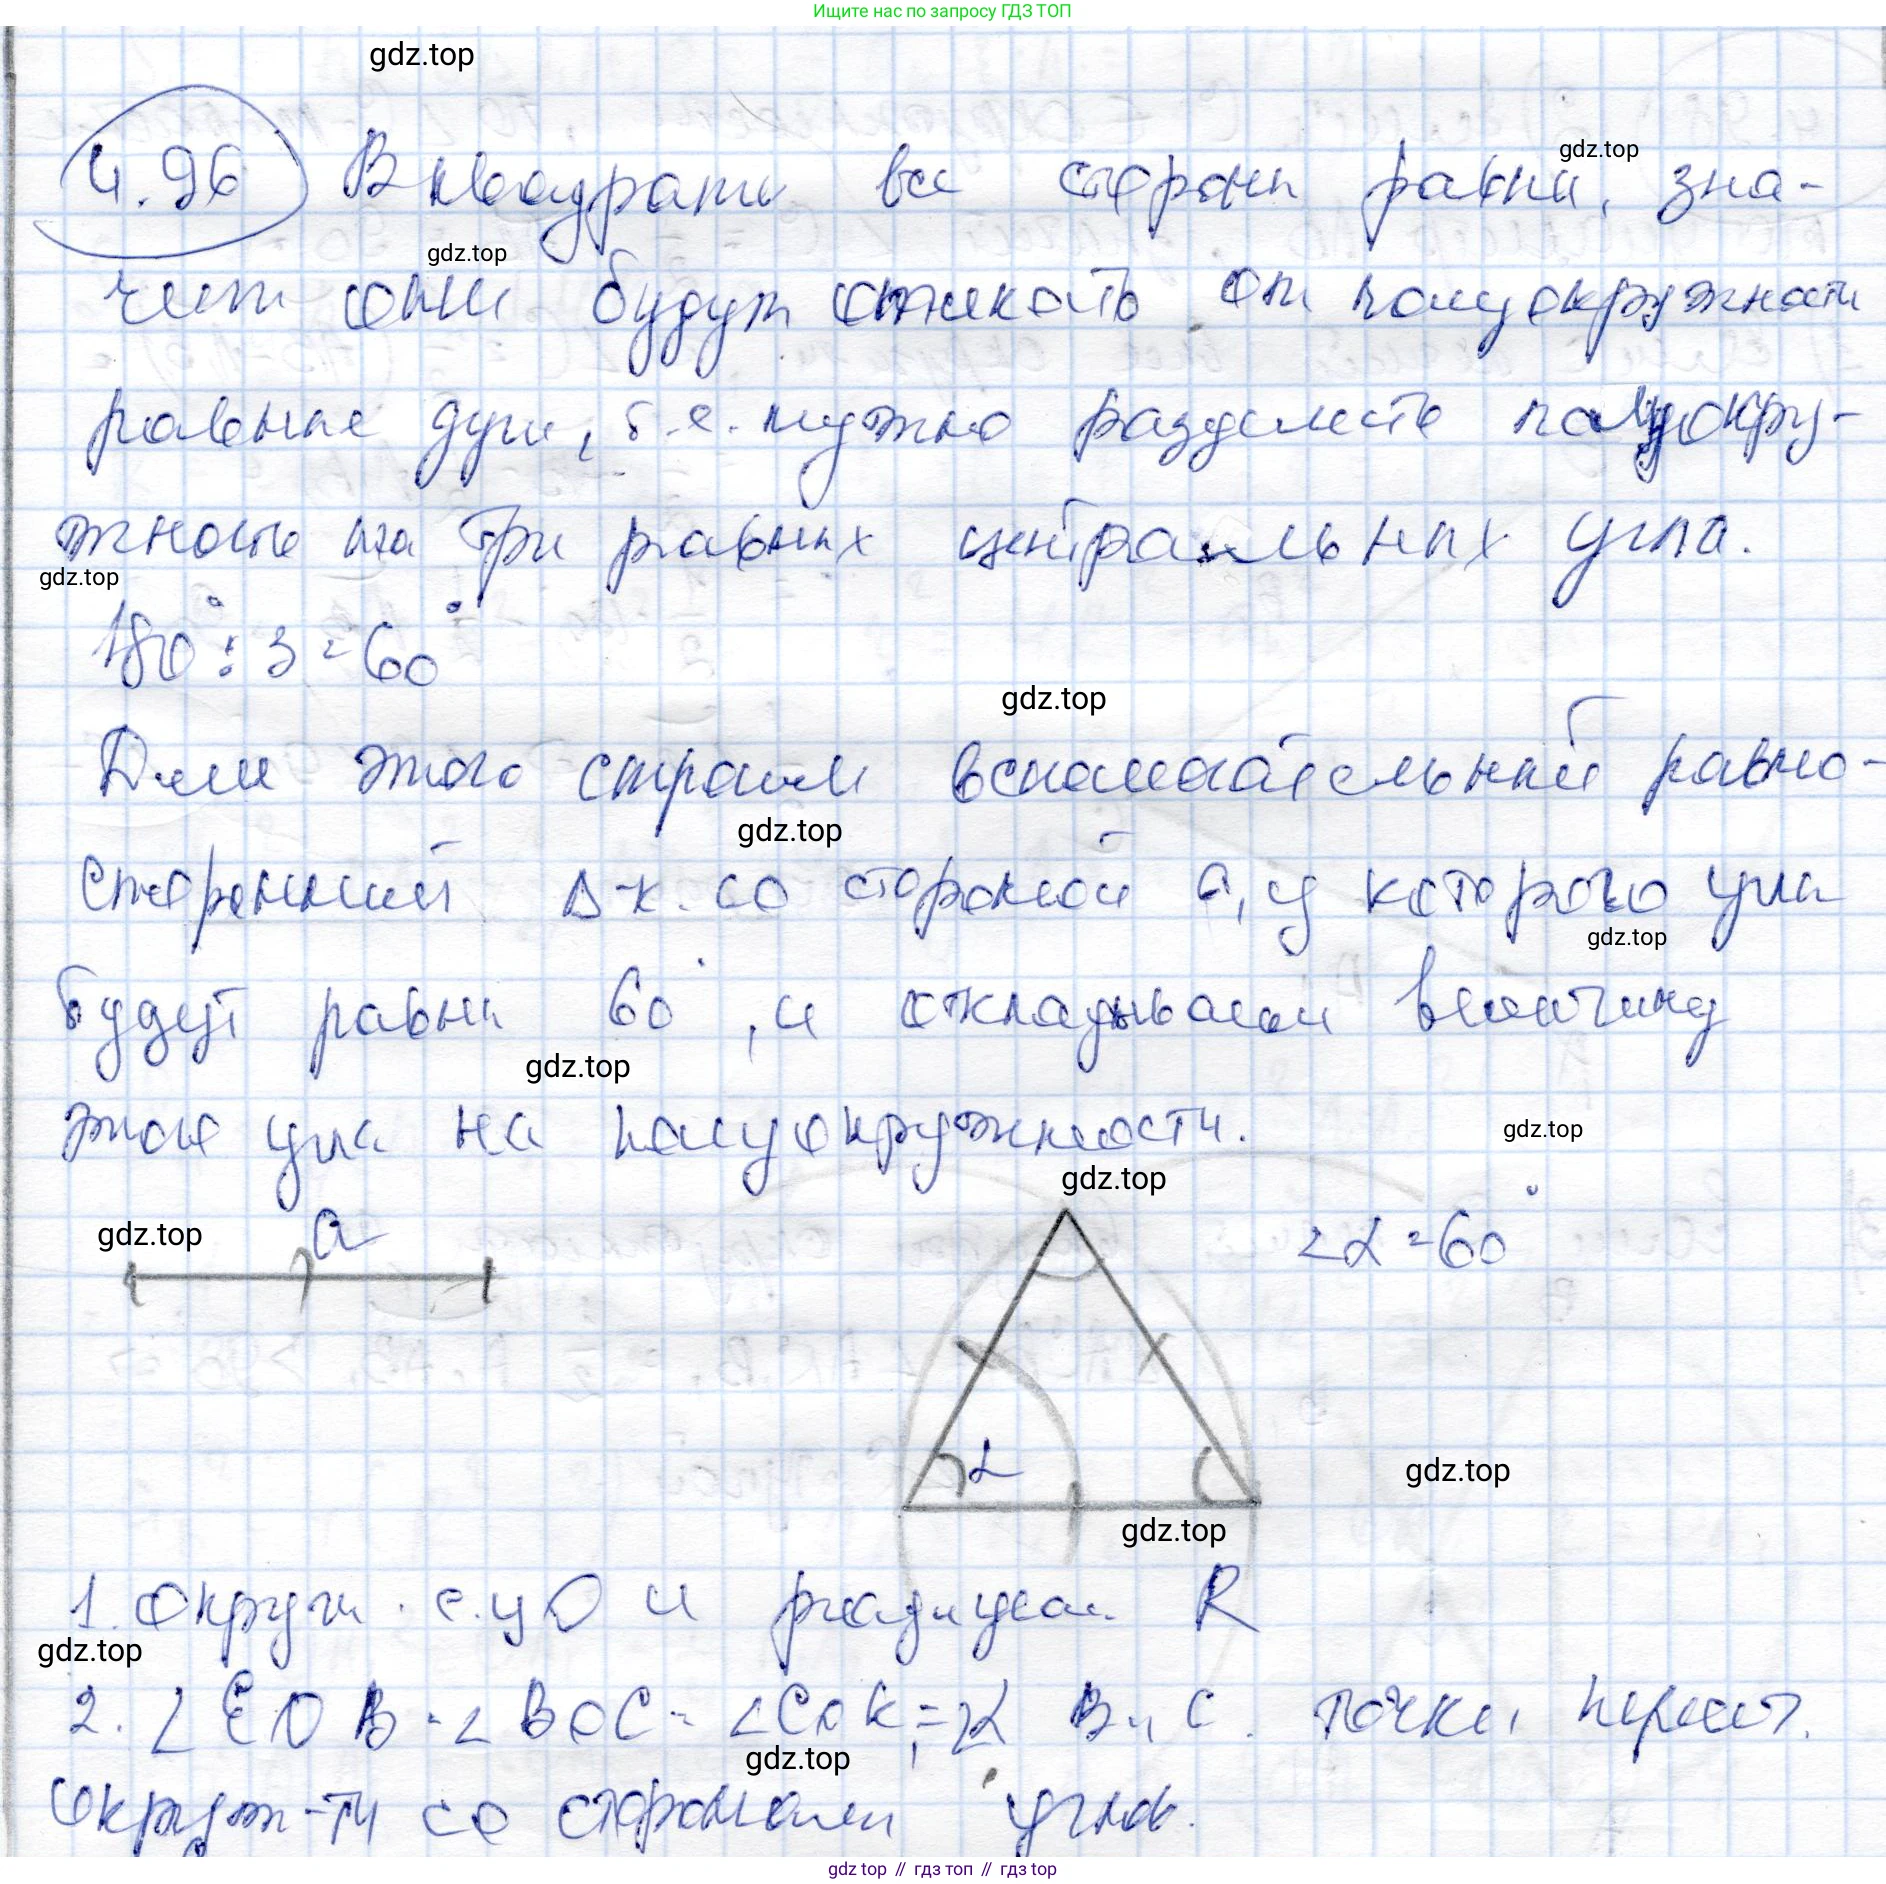 Ищите нас по запросу ГДЗ ТОП
gdz.top
4.96 В квадрате все стороны равны, зна-
gdz.top
gdz.top
чит они будут отсекать от полуокружности
равные дуги, т.е. нужно разделить полуокру-
жность на три равных центральных угла.
gdz.top
180° : 3 = 60°
gdz.top
Для этого строим вспомогательный равно-
gdz.top
сторонний Δ-к со стороной a, у которого углы
gdz.top
будут равны 60°, и откладываем величину
gdz.top
этого угла на полуокружности.
gdz.top
gdz.top
gdz.top
a
∠α = 60°
α
gdz.top
gdz.top
1. Окружн. с ц O и радиусом R
gdz.top
2. ∠EOB = ∠BOC = ∠COK = ∠α B и C точки перес.
gdz.top
окруж-ти со сторонами углов.
gdz top // гдз топ // гдз top